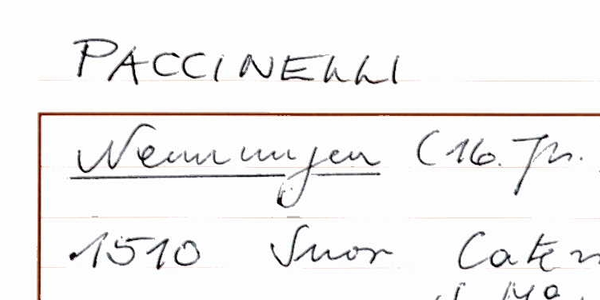 PACCINELLI
Nennungen (16. Jh.
1510 Suor Cate